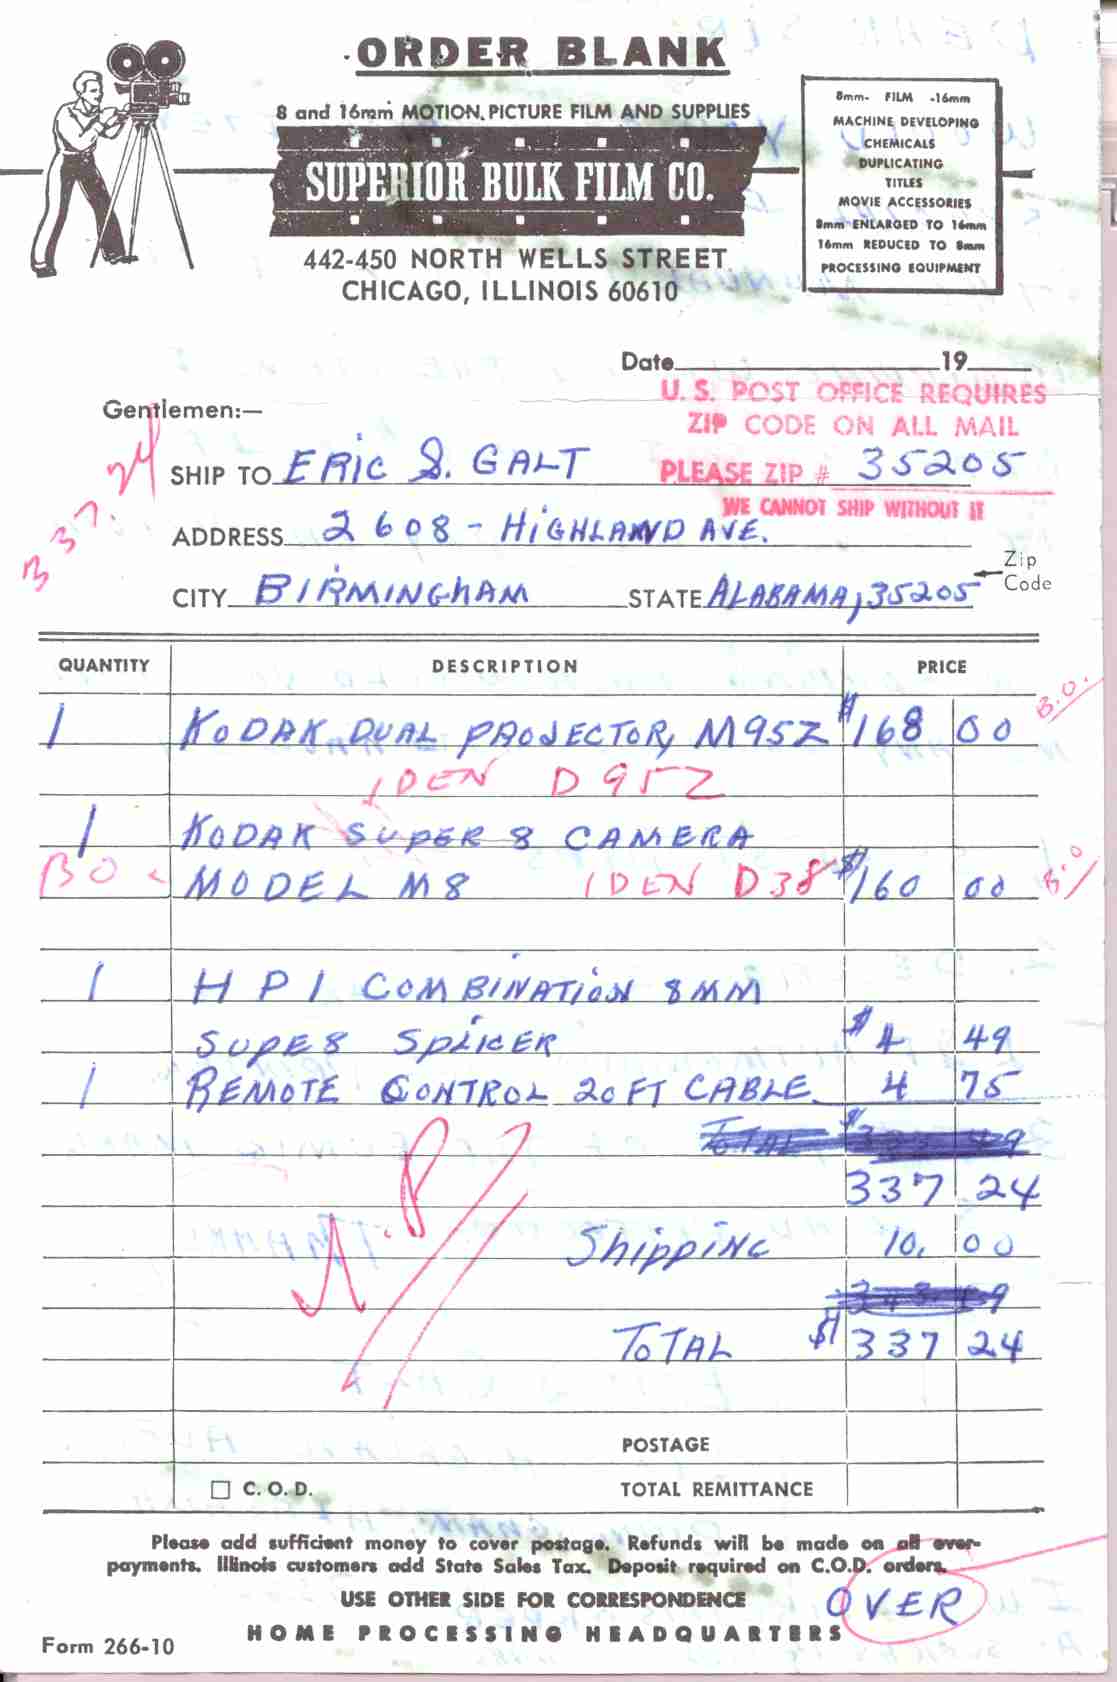 ORDER BLANK
8 and 16mm MOTION PICTURE FILM AND SUPPLIES
SUPERIOR BULK FILM CO.
442-450 NORTH WELLS STREET
CHICAGO, ILLINOIS 60610
8mm- FILM -16mm
MACHINE DEVELOPING
CHEMICALS
DUPLICATING
TITLES
MOVIE ACCESSORIES
8mm ENLARGED TO 16mm
16mm REDUCED TO 8mm
PROCESSING EQUIPMENT
Date 19
U. S. POST OFFICE REQUIRES
ZIP CODE ON ALL MAIL
Gentlemen:—
337.24
SHIP TO ERIC S. GALT PLEASE ZIP # 35205
WE CANNOT SHIP WITHOUT IT
ADDRESS 2608 - HIGHLAND AVE.
Zip
Code
CITY BIRMINGHAM STATE ALABAMA, 35205
QUANTITY DESCRIPTION PRICE
1 KODAK DUAL PROJECTOR, M95Z $168 00 B.O.
IDEN D95Z
1 KODAK SUPER 8 CAMERA
BO MODEL M8 IDEN D38 $160 00 B.O
1 HPI COMBINATION 8MM
SUPE8 SPLICER $4 49
1 REMOTE CONTROL 20FT CABLE. 4 75
TOTAL
337 24
Shipping 10. 00
TOTAL $337 24
POSTAGE
C. O. D. TOTAL REMITTANCE
Please add sufficient money to cover postage. Refunds will be made on all over-
payments. Illinois customers add State Sales Tax. Deposit required on C.O.D. orders.
USE OTHER SIDE FOR CORRESPONDENCE
OVER
HOME PROCESSING HEADQUARTERS
Form 266-10